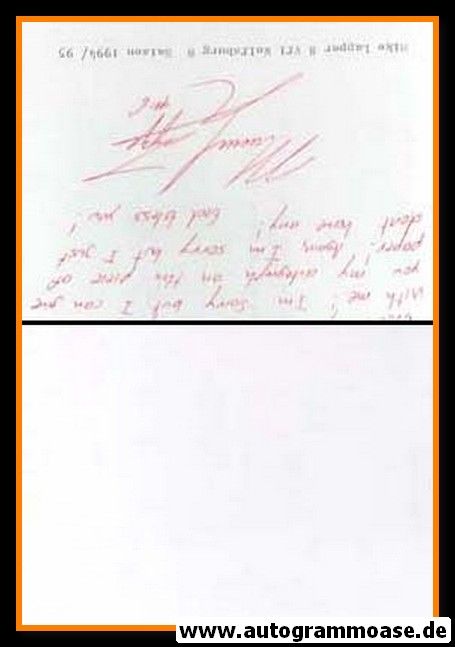 with me! I'm sorry but I can give
you my autograph on this piece of
paper. Again, I'm sorry but I just
dont have any! God bless you!
Mike Lapper @ Vfl Wolfsburg @ Saison 1994/95
www.autogrammoase.de